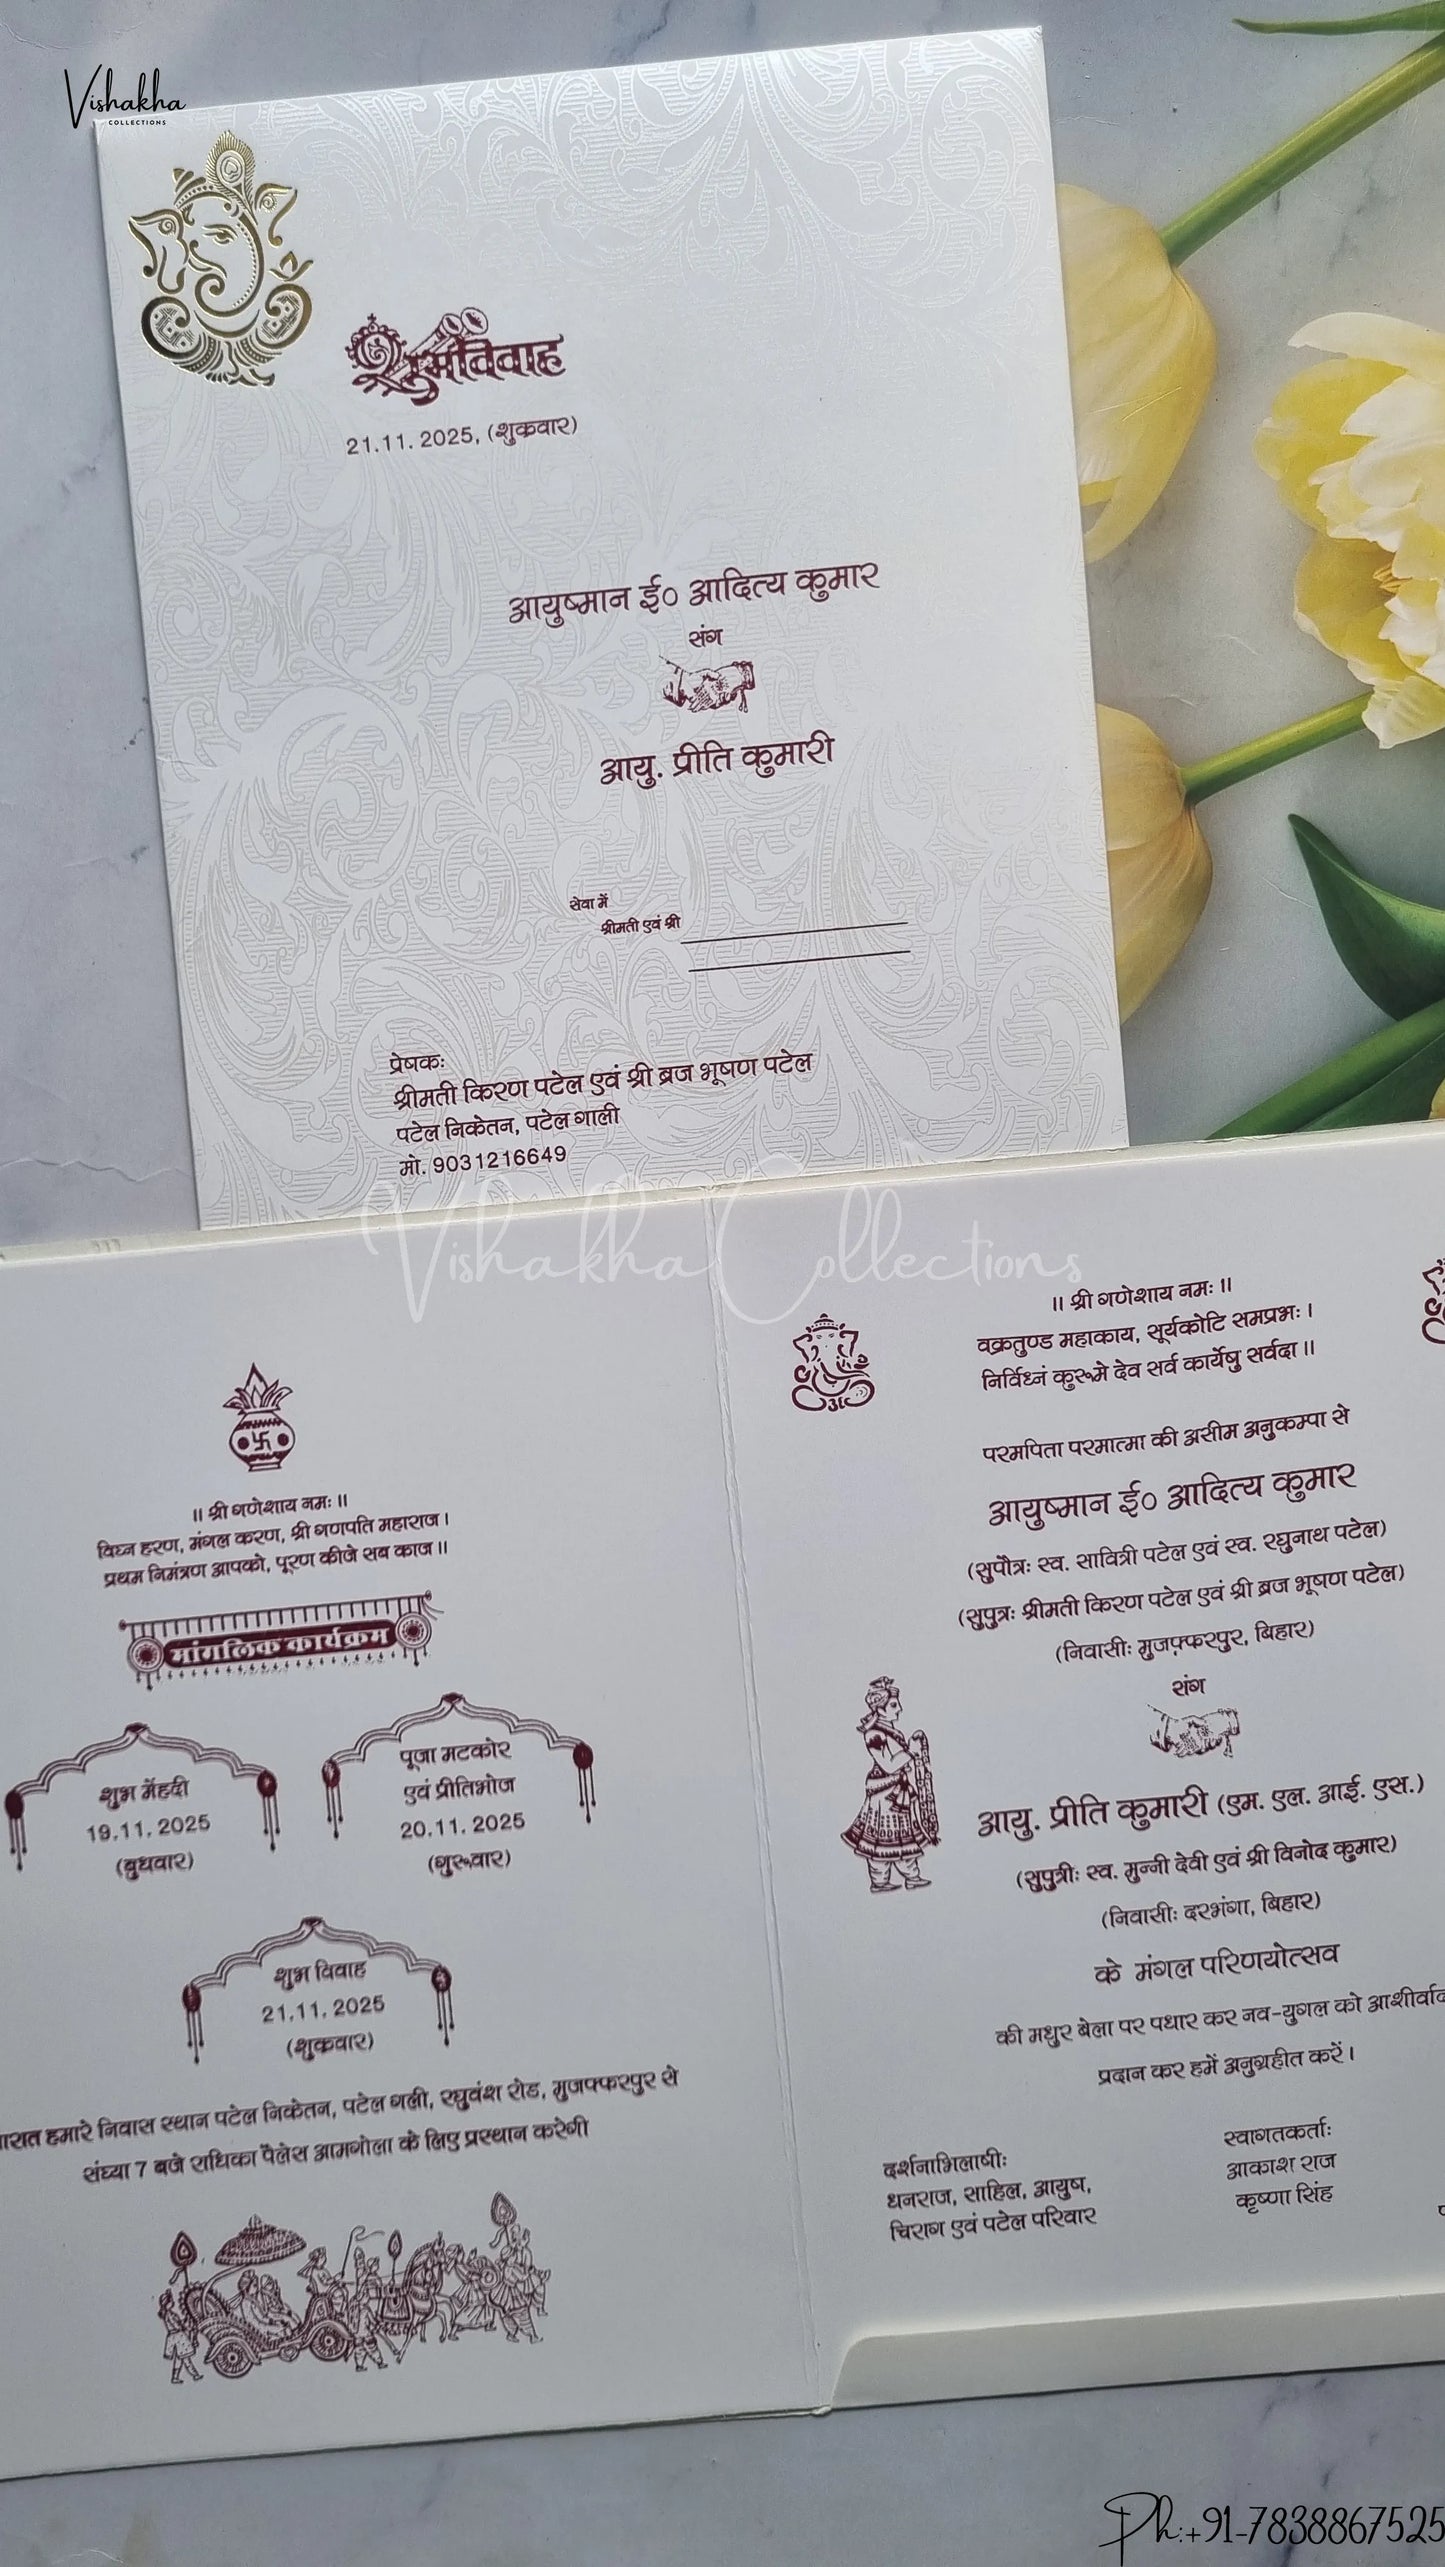 Vishakha
COLLECTIONS
शुभ विवाह
21.11. 2025, (शुक्रवार)
आयुष्मान ई० आदित्य कुमार
संग
आयु. प्रीति कुमारी
सेवा में
श्रीमती एवं श्री
प्रेषकः
श्रीमती किरण पटेल एवं श्री ब्रज भूषण पटेल
पटेल निकेतन, पटेल गाली
मो. 9031216649
Vishakha Collections
॥ श्री गणेशाय नमः ॥
विघ्न हरण, मंगल करण, श्री गणपति महाराज।
प्रथम निमंत्रण आपको, पूरण कीजे सब काज॥
मांगलिक कार्यक्रम
शुभ मेंहदी
19.11. 2025
(बुधवार)
पूजा मटकोर
एवं प्रीतिभोज
20.11. 2025
(गुरूवार)
शुभ विवाह
21.11. 2025
(शुक्रवार)
हमारे निवास स्थान पटेल निकेतन, पटेल गली, रघुवंश रोड, मुजफ्फरपुर से
संघ्या 7 बजे राधिका पैलेस आमगोला के लिए प्रस्थान करेगी
॥ श्री गणेशाय नमः ॥
वक्रतुण्ड महाकाय, सूर्यकोटि समप्रभः।
निर्विघ्नं कुरूमे देव सर्व कार्येषु सर्वदा॥
परमपिता परमात्मा की असीम अनुकम्पा से
आयुष्मान ई० आदित्य कुमार
(सुपौत्रः स्व. सावित्री पटेल एवं स्व. रघुनाथ पटेल)
(सुपुत्रः श्रीमती किरण पटेल एवं श्री ब्रज भूषण पटेल)
(निवासीः मुजफ़्फरपुर, बिहार)
संग
आयु. प्रीति कुमारी (एम. एल. आई. एस.)
(सुपुत्रीः स्व. मुन्नी देवी एवं श्री विनोद कुमार)
(निवासीः दरभंगा, बिहार)
के मंगल परिणयोत्सव
की मधुर बेला पर पधार कर नव-युगल को आशीर्वाद
प्रदान कर हमें अनुग्रहीत करें।
दर्शनाभिलाषीः
धनराज, साहिल, आयुष,
चिराग एवं पटेल परिवार
स्वागतकर्ताः
आकाश राज
कृष्णा सिंह
Ph:+91-7838867525